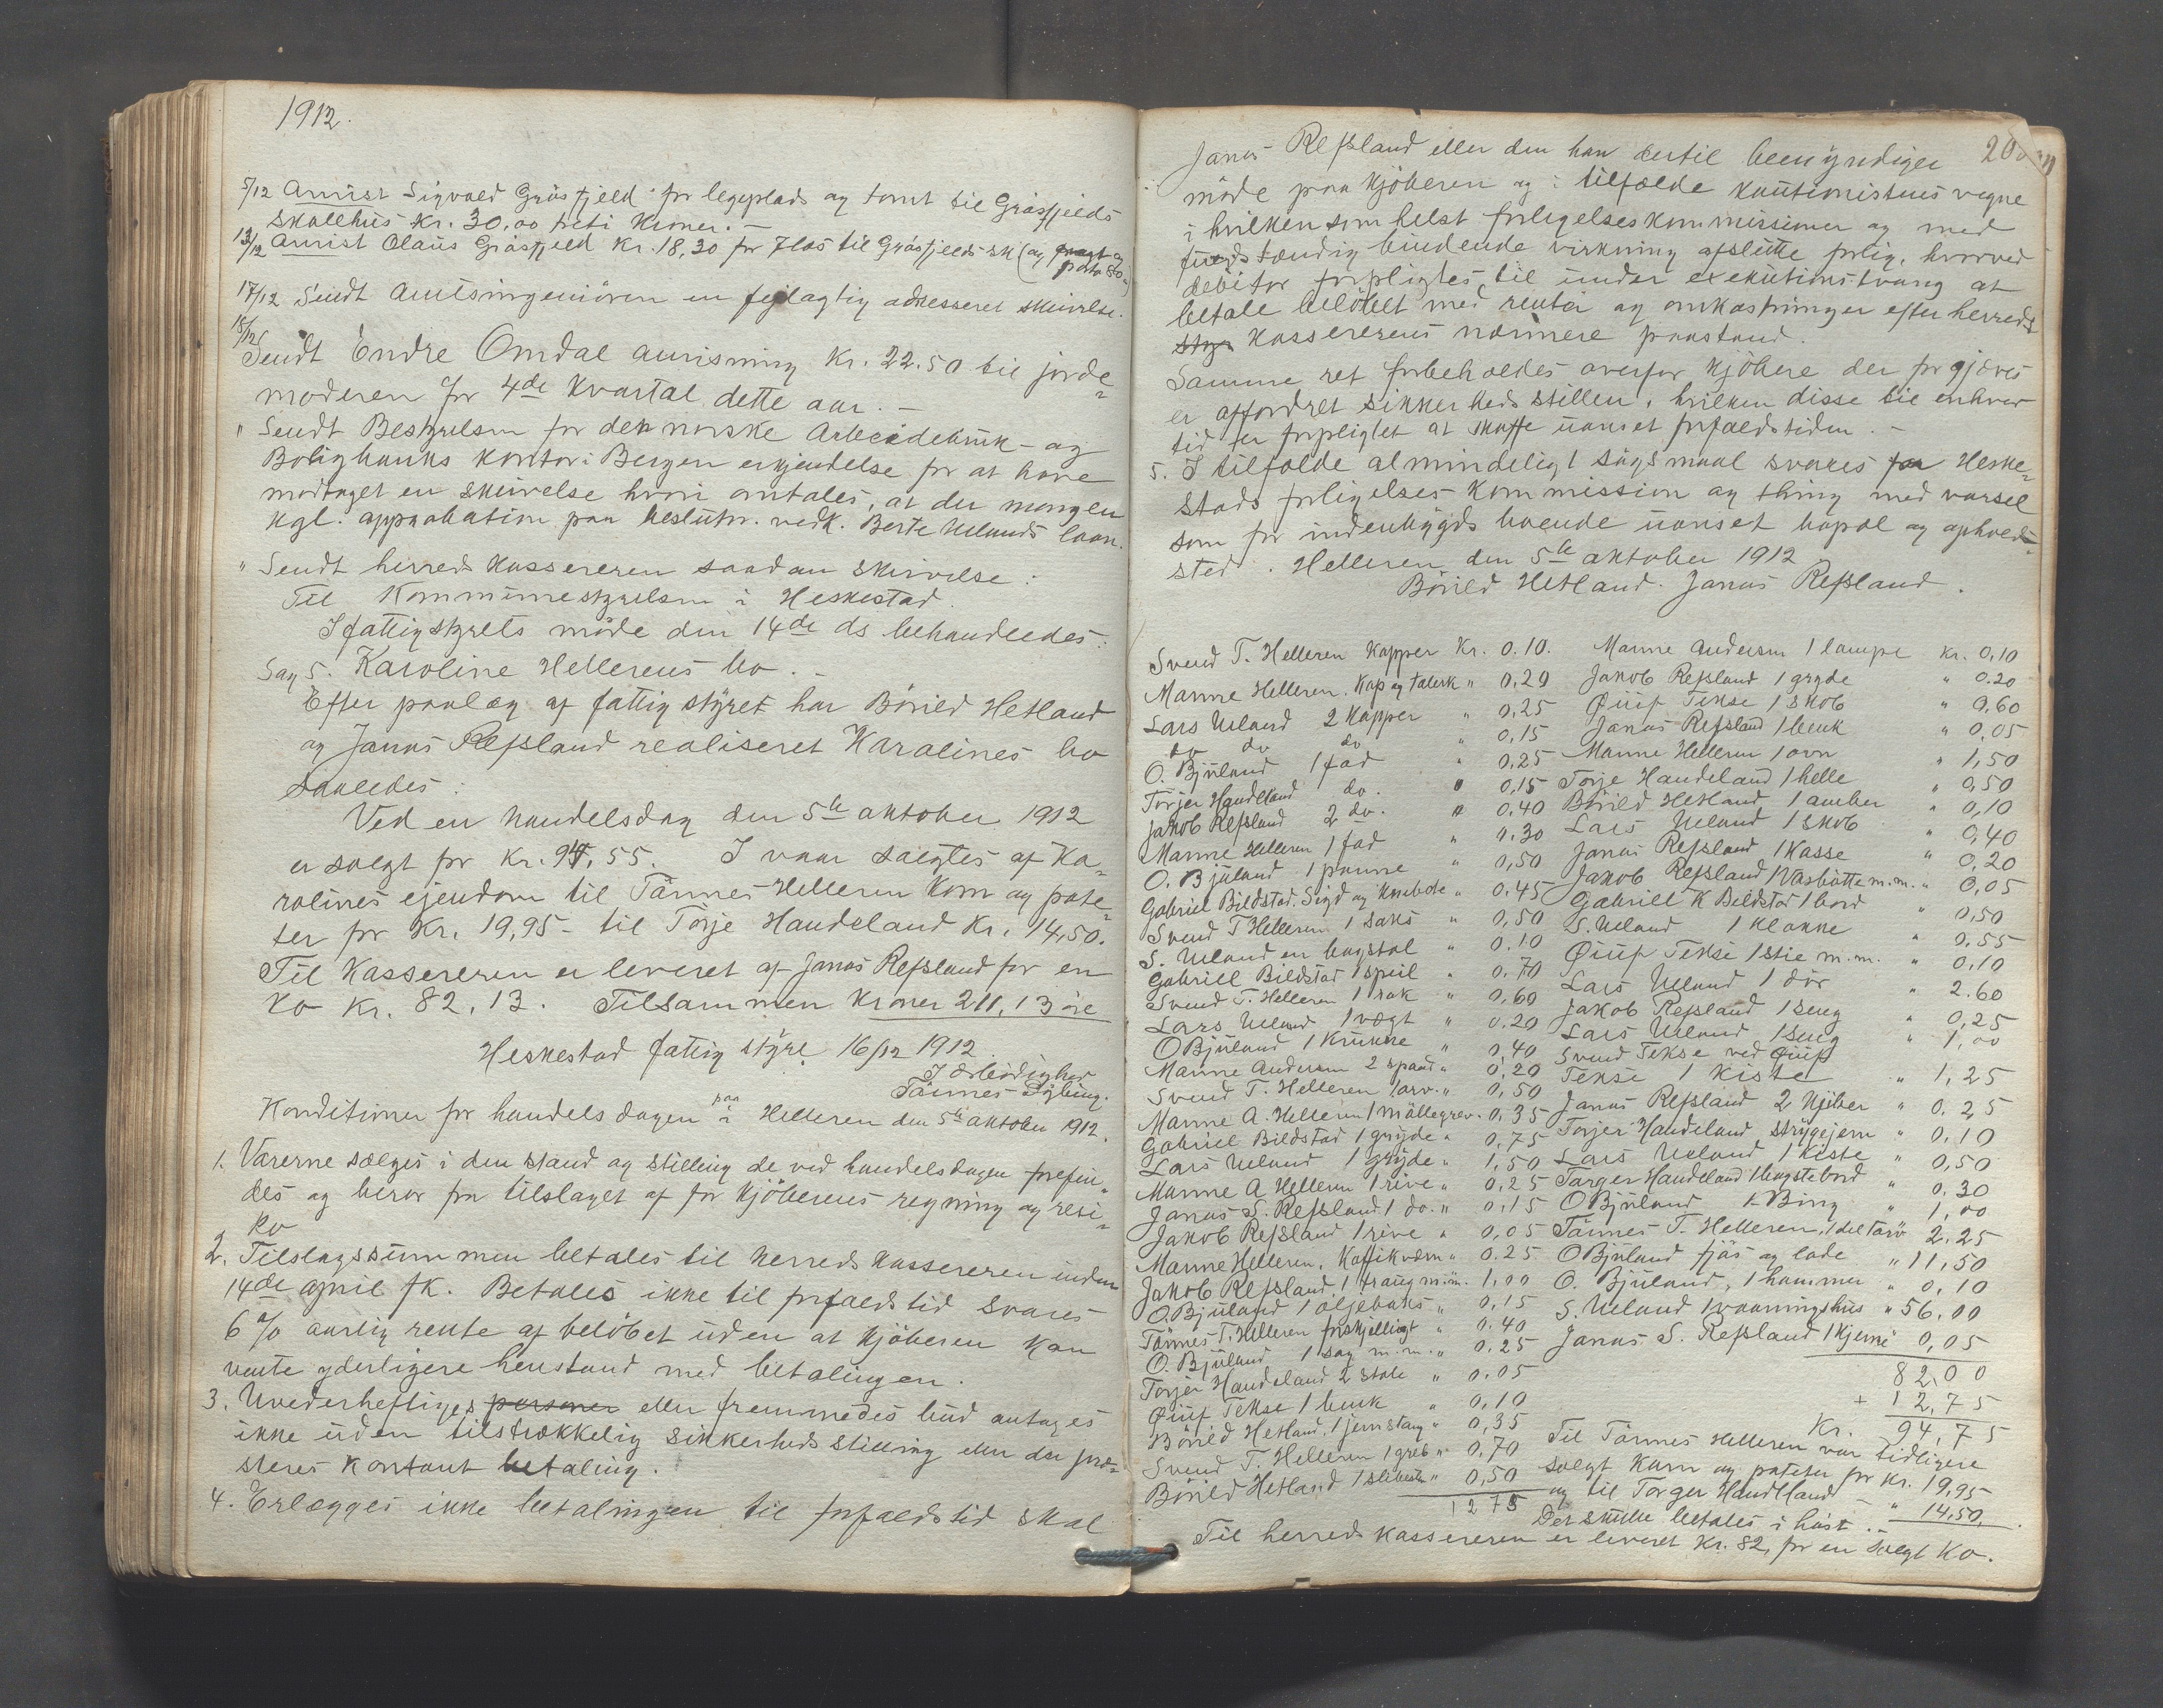 1912.
5/12 Anvist Sigvald Gråsfjeld for legeplads og tomt til Gråsfjelds
skolehus kr. 30,00 treti kroner. —
13/12 Anvist Olaus Gråsfjeld Kr. 18,30 for 7 las til Gråsfjelds sk (og fragt og porto 80)
17/12 Sendt Amtsingeniøren en fejlagtig adresseret skrivelse.
18/12 Sendt Endre Omdal anvisning Kr. 22.50 til jorde-
moderen for 4de kvartal dette aar. —
" Sendt Bestyrelsen for den norske Arbeidebruk- og
Boligbanks kontor i Bergen erkjendelse for at have
modtaget en skrivelse hvori omtales, at der mangler
kgl. approbation paa beslutn. vedk. Berte Uelands laan.
" Sendt herredskassereren saadan skrivelse:
Til Kommunestyrelsen i Heskestad.
I fattigstyrets møde den 14de ds behandledes:
Sag 5. Karoline Hellerens bo. —
Efter paalæg af fattigstyret har Bórild Hetland
og Janas Refsland realiseret Karolines bo
saaledes:
Ved en handelsdag den 5te oktober 1912
er solgt for kr. 94,55. I vaar solgtes af Ka-
rolines ejendom til Tønnes Helleren korn og pote-
ter for Kr. 19,95 - til Torje Handeland Kr. 14,50.
Til Kassereren er leveret af Janas Refsland for en
ko kr. 82,13. Tilsammen kroner 211,13 øre
Heskestad fattigstyre 16/12 1912
I ærbødighed
Tønnes Dybing.
Konditioner for handelsdagen paa i Helleren den 5te oktober 1912.
1. Varerne sælges i den stand og stilling de ved handelsdagen forefin-
des og beror fra tilslaget af for kjøberens regning og resi-
ko
2. Tilslagssummen betales til herredskassereren inden
14de april fk. Betales ikke til forfaldstid svares
6 % aarlig rente af beløbet uden at kjøberen kan
vente yderligere henstand med betalingen.
3. Uvederheftiges personer eller fremmedes bud antages
ikke uden tilstrækkelig sikkerhedsstilling eller der præ-
steres kontant betaling.
4. Erlægges ikke betalingen til forfaldstid skal
20
Janas Refsland eller den han dertil bemyndiger
møde paa kjøberen og i tilfælde kautionistens vegne
i hvilkensomhelst forligelseskommissioner og med
fuldstændig bindende virkning afslutte forlig, hvorved
debitor forpligtes til under exekutionstvang at
betale beløbet med renter og omkostninger efter herreds
styr kassererens nærmere paastand.
Samme ret forbeholdes overfor kjøbere der forgjæves
er affordret sikkerhedsstillen, hvilken disse til enhver
tid er forpligtet at skaffe uanset forfaldstiden. —
5. I tilfælde almindeligt søgsmaal svares for Heske-
stads forligelseskommission og thing med varsel
som for indenbygds boende uanset bopæl og opholds-
sted. Helleren den 5te oktober 1912
Bórild Hetland. Janas Refsland.
Svend T. Helleren kopper Kr. 0.10.
Manne Helleren. Kop og talerk " 0,20
Lars Ueland 2 kopper " 0,25
do do do " 0,15
O. Bjuland 1 fad " 0,25
Torjer Handeland do. " 0,15
Jakob Refsland 2 do. " 0,40
Manne Helleren 1 fad " 0.30
O. Bjuland 1 panne " 0,50
Gabriel Bildstad. Sigd og knebede " 0.45
Svend T Helleren 1 saks " 0,50
S. Ueland en bogstol " 0.10
Gabriel Bildstad 1 speil " 0.70
Svend T. Helleren 1 rok " 0,60
Lars Ueland 1 vægt " 0.20
O Bjuland 1 krukke " 0,40
Manne Andersen 2 spand " 0,20
Svend T. Helleren 1 orv. " 0,50
Manne A. Helleren 1 møllegrev. 0,35
Gabriel Bildstad 1 gryde " 0,75
Lars Ueland 1 gryde " 1,50
Manne A Helleren 1 rive " 0,25
Janas S. Refsland 1 do. " 0,15
Jakob Refsland 1 rive " 0,05
Manne Helleren. Kaffikværn " 0.25
Jakob Refsland, 1 traug m.m. 1,00
O. Bjuland 1 oljeboks " 0,15
Tønnes T. Helleren forskjelligt " 0.40
O. Bjuland 1 sag m.m. " 0.25
Torjer Handeland 2 stole " 0.05
Øiuf Tekse 1 benk " 0,10
Bórild Hetland, 1 jernstang " 0,35
Svend T. Helleren 1 greb " 0.70
Bórild Hetland 1 slibesten " 0,50
1275
Manne Andersen 1 lampe kr. 0,10
Jakob Refsland 1 gryde " 0.20
Øiuf Tekse 1 skob " 0,60
Janas Refsland 1 benk " 0,05
Manne Helleren 1 ovn " 1,50
Torje Handeland 1 helle " 0,50
Bórild Hetland 1 amber " 0,10
Lars Ueland 1 skob " 0,40
Janas Refsland 1 kasse " 0,20
Jakob Refsland 1 Vasbøtte m.m. " 0,05
Gabriel K Bildstad 1 bord " 0,50
S. Ueland 1 klokke " 0,55
Øiuf Tekse 1 stie m.m. " 0,10
Lars Ueland 1 dør " 2.60
Jakob Refsland 1 seng " 0,25
Lars Ueland 1 seng " 1,00
Svend Tekse ved Øiuf
Tekse 1 kiste " 1,25
Janas Refsland 2 kjelker " 0.25
Torjer Handeland, strygejern " 0,10
Lars Ueland 1 kiste " 0,50
Targer Handeland 1 langstebord " 0.30
O Bjuland 1 Bing " 1,00
Tønnes T. Helleren, 1 del Torv 2,25
O Bjuland fjøs og lade " 11,50
O. Bjuland, 1 hammer " 0,10
S. Ueland 1 vaaningshus " 56,00
Janas S. Refsland 1 kjerne 0,05
82,00
+ 12,75
Kr. 94,75
Til Tønnes Helleren var tidligere
solgt korn og poteter for kr. 19,95
og til Torger Handeland — " 14,50.
Det skulle betales i høst. —
Til herredskassereren er leveret kr. 82, for en solgt ko.